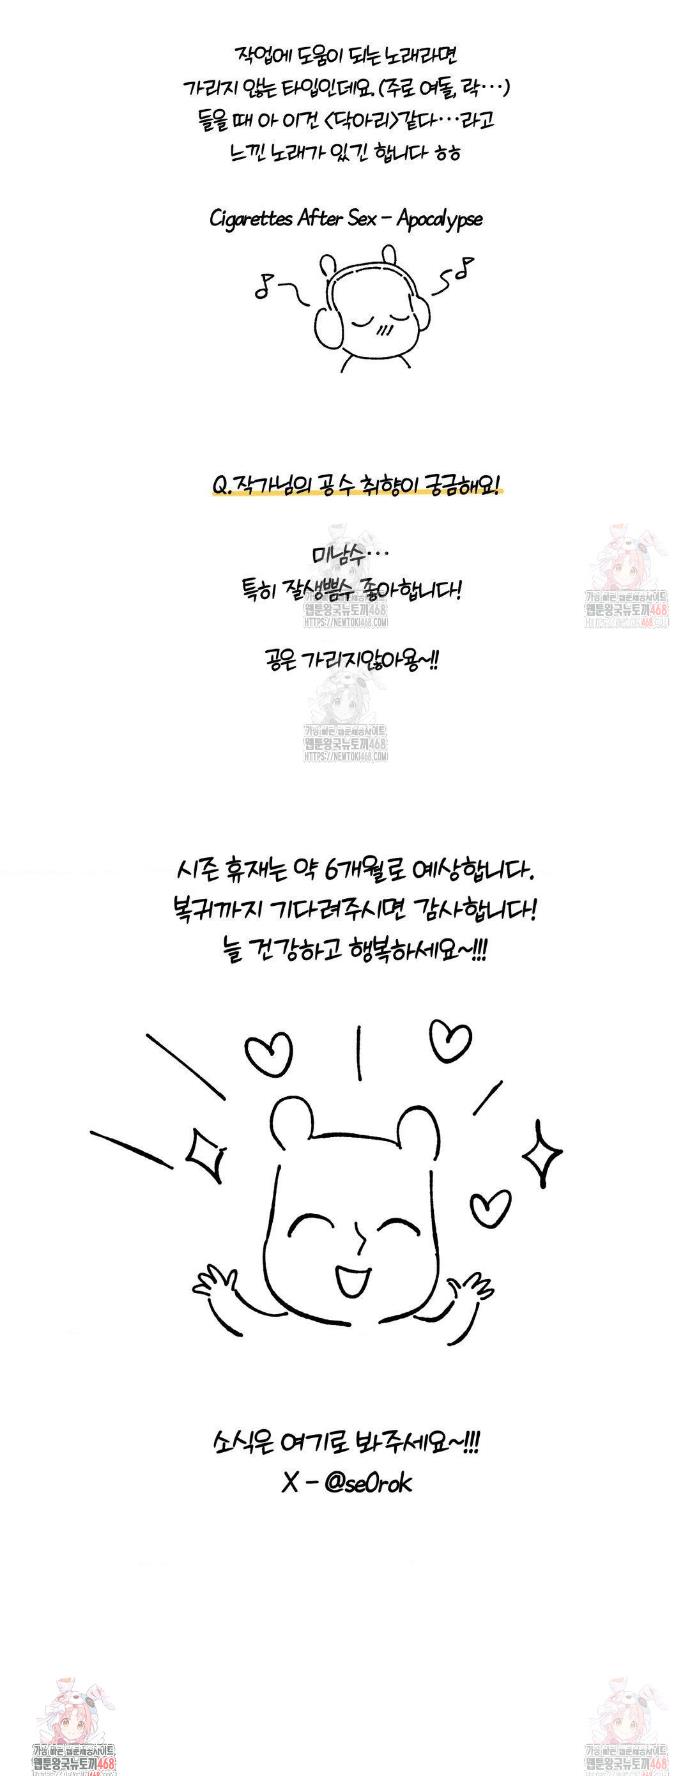 작업에 도움이 되는 노래라면
가리지 않는 타입인데요. (주로 여돌, 락…)
들을 때 아 이건 <닥아리>같다…라고
느낀 노래가 있긴 합니다 ㅎㅎ
Cigarettes After Sex - Apocalypse
Q.작가님의 공수 취향이 궁금해요!
미남수…
특히 잘생쁨수 좋아합니다!
가장 빠른 웹툰제공사이트
웹툰왕국뉴토끼468
HTTPS://NEWTOKI468.COM
가장 빠른 웹툰제공사이트
웹툰왕국뉴토끼468
HTTPS://NEWTOKI468.COM
공은 가리지않아용~!!
가장 빠른 웹툰제공사이트
웹툰왕국뉴토끼468
HTTPS://NEWTOKI468.COM
시즌 휴재는 약 6개월로 예상합니다.
복귀까지 기다려주시면 감사합니다!
늘 건강하고 행복하세요~!!!
소식은 여기로 봐주세요~!!!
X - @se0rok
가장 빠른 웹툰제공사이트
웹툰왕국뉴토끼468
가장 빠른 웹툰제공사이트
웹툰왕국뉴토끼468